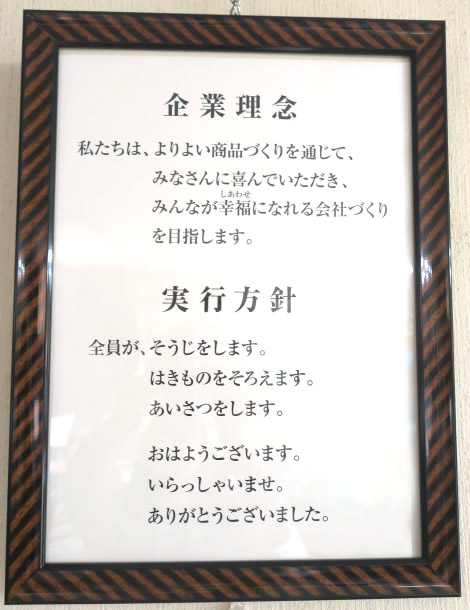 企業理念
私たちは、よりよい商品づくりを通じて、
みなさんに喜んでいただき、
しあわせ
みんなが幸福になれる会社づくり
を目指します。
実行方針
全員が、そうじをします。
はきものをそろえます。
あいさつをします。
おはようございます。
いらっしゃいませ。
ありがとうございました。